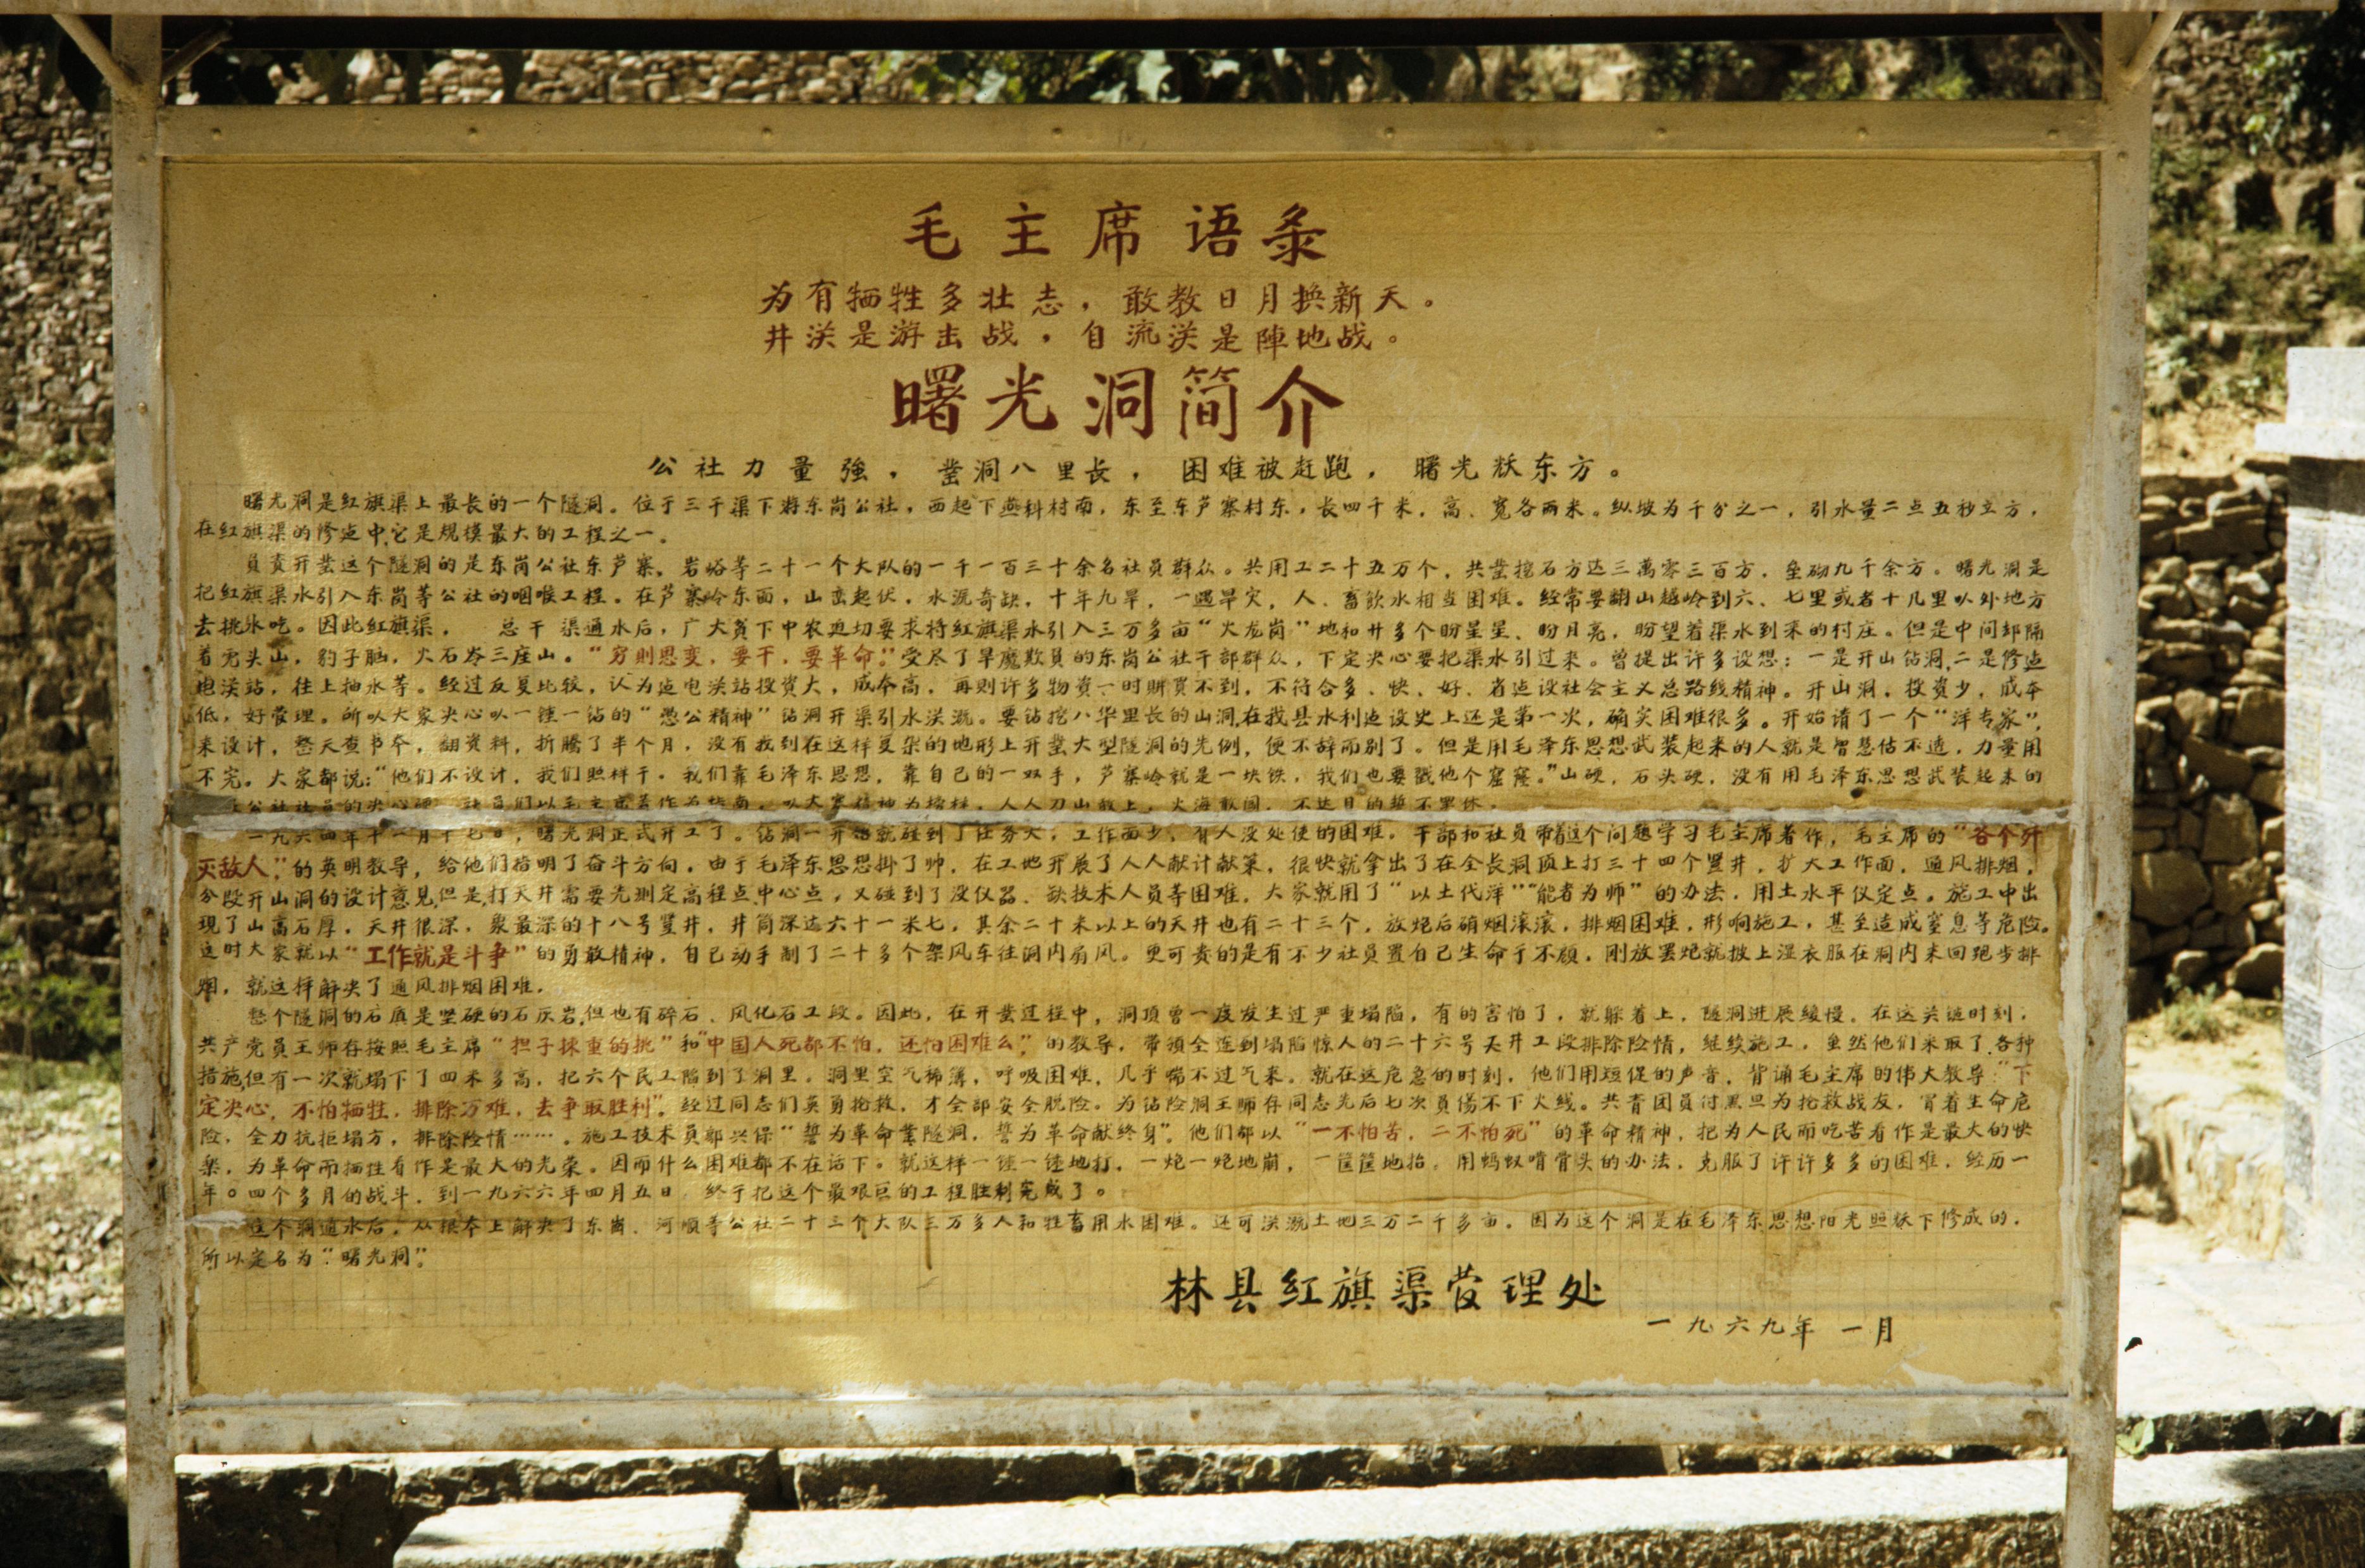 毛主席语录
为有牺牲多壮志，敢教日月换新天。
井浂是游击战，自流浂是陣地战。
曙光洞简介
公社力量強，凿洞八里长，困难被赶跑，曙光跃东方。
曙光洞是红旗渠上最长的一个隧洞。位于三干渠下游东岗公社，西起下燕科村南，东至东芦寨村东，长四千米，高、宽各两米。纵坡为千分之一，引水量二点五秒立方，
在红旗渠的修造中，它是规模最大的工程之一。
負责开凿这个隧洞的是东岗公社东芦寨，岩峪等二十一个大队的一千一百三十余名社员群众。共用工二十五万个，共凿挖石方达三萬零三百方，垒砌九千余方。曙光洞是
把红旗渠水引入东岗等公社的咽喉工程。在芦寨岭东面，山峦起伏，水源奇缺，十年九旱，一遇旱灾，人、畜飲水相当困难。经常要翻山越岭到六、七里或者十几里以外地方
去挑水吃。因此红旗渠， 总干渠通水后，广大貧下中农迫切要求将红旗渠水引入三万多亩“火龙岗”地和廾多个盼星星、盼月亮，盼望着渠水到来的村庄。但是中间却隔
着秃头山，豹子脑，火石岺三座山。“穷則思变，要干，要革命。”受尽了旱魔欺負的东岗公社干部群众，下定决心要把渠水引过来。曾提出许多设想：一是开山钻洞，二是修造
电浂站，往上抽水等。经过反复比较，认为造电浂站投資大，成夲高，再则许多物資一时購買不到，不符合多、快、好、省造设社会主义总路线精神。开山洞，投资少，成夲
低，好管理。所以大家决心以一锤一钻的“愚公精神”钻洞开渠引水浂溉。要钻挖八华里长的山洞，在我县水利造设史上还是第一次，确实困难很多。开始请了一个“洋专家”，
来设计，整天查书夲，翻资料，折腾了半个月，没有找到在这样复杂的地形上开凿大型隧洞的先例，便不辞而别了。但是用毛泽东思想武装起来的人就是智慧估不透，力量用
不完。大家都说：“他们不设计，我们照样干。我们靠毛泽东思想，靠自己的一双手，芦寨岭就是一块铁，我们也要戳他个窟窿。”山硬，石头硬，没有用毛泽东思想武装起来的
公社社员的决心硬，社员们以毛主席著作为指南，以大寨精神为榜样，人人刀山敢上，火海敢闯，不达目的誓不罢休。
一九六四年十一月十七日，曙光洞正式开工了。钻洞一开始就碰到了任务大，工作面少，有人没处使的困难。干部和社员带着这个问题学习毛主席著作，毛主席的“各个歼
灭敌人，”的英明教导，给他们指明了奋斗方向。由于毛泽东思想掛了帅，在工地开展了人人献计献策，很快就拿出了在全长洞顶上打三十四个竖井，扩大工作面，通风排烟，
分段开山洞的设计意见，但是，打天井需要先测定高程点，中心点，又碰到了没仪器、缺技术人员等困难，大家就用了“以土代洋”“能者为师”的办法，用土水平仪定点。施工中出
现了山高石厚，天井很深，象最深的十八号竖井，井筒深达六十一米七，其余二十米以上的天井也有二十三个，放炮后硝烟滚滚，排烟困难，形响施工，甚至造成窒息等危险。
这时大家就以“工作就是斗争”的勇敢精神，自己动手制了二十多个架风车往洞内扇风。更可贵的是有不少社员置自己生命于不顾，刚放罢炮就披上湿衣服在洞内来回跑步排
烟，就这样解决了通风排烟困难。
整个隧洞的石质是坚硬的石灰岩，但也有碎石、风化石工段。因此，在开凿过程中，洞顶曾一度发生过严重塌陷，有的害怕了，就躲着上，隧洞进展缓慢。在这关键时刻，
共产党员王师存按照毛主席“担子拣重的挑”和“中国人死都不怕，还怕困难么，”的教导，带领全连到塌陷惊人的二十六号天井工段排除险情，继续施工，虽然他们采取了各种
措施，但有一次就塌下了四米多高，把六个民工陷到了洞里。洞里空气稀薄，呼吸困难，几乎喘不过气来。就在这危急的时刻，他们用短促的声音，背诵毛主席的伟大教导：“下
定决心，不怕牺牲，排除万难，去争取胜利”。经过同志们英勇抢救，才全部安全脱险。为钻险洞王师存同志先后七次負傷不下火线。共青团员付黑旦为抢救战友，冒着生命危
险，全力抗拒塌方，排除险情……。施工技术员郭兴保“誓为革命凿隧洞，誓为革命献终身”。他们都以“一不怕苦，二不怕死”的革命精神，把为人民而吃苦看作是最大的快
楽，为革命而牺牲看作是最大的光荣。因而什么困难都不在话下。就这样一锤一锤地打，一炮一炮地崩，一筐筐地抬。用蚂蚁啃骨头的办法，克服了许许多多的困难，经历一
年。四个多月的战斗，到一九六六年四月五日，终于把这个最艰巨的工程胜利完成了。
这个洞通水后，从根夲上解决了东岗、河顺等公社二十三个大队三万多人和牲畜用水困难。还可浂溉土地三万二千多亩。因为这个洞是在毛泽东思想阳光照跃下修成的，
所以定名为：“曙光洞”。
林县红旗渠管理处
一九六九年 一月